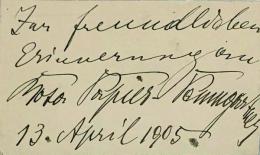 Zur freundlichen
Erinnerung an
Rosa Papier-Paumgartner
13. April 1905.